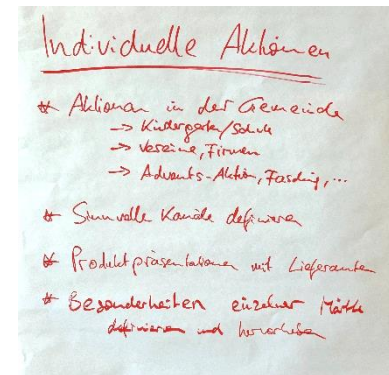 Individuelle Aktionen
* Aktionen in der Gemeinde
-> Kindergarten/Schule
-> Vereine, Firmen
-> Advents-Aktion, Fasching, ...
* Sinnvolle Kanäle definieren
* Produktpräsentationen mit Lieferanten
* Besonderheiten einzelner Märkte
definieren und hervorheben